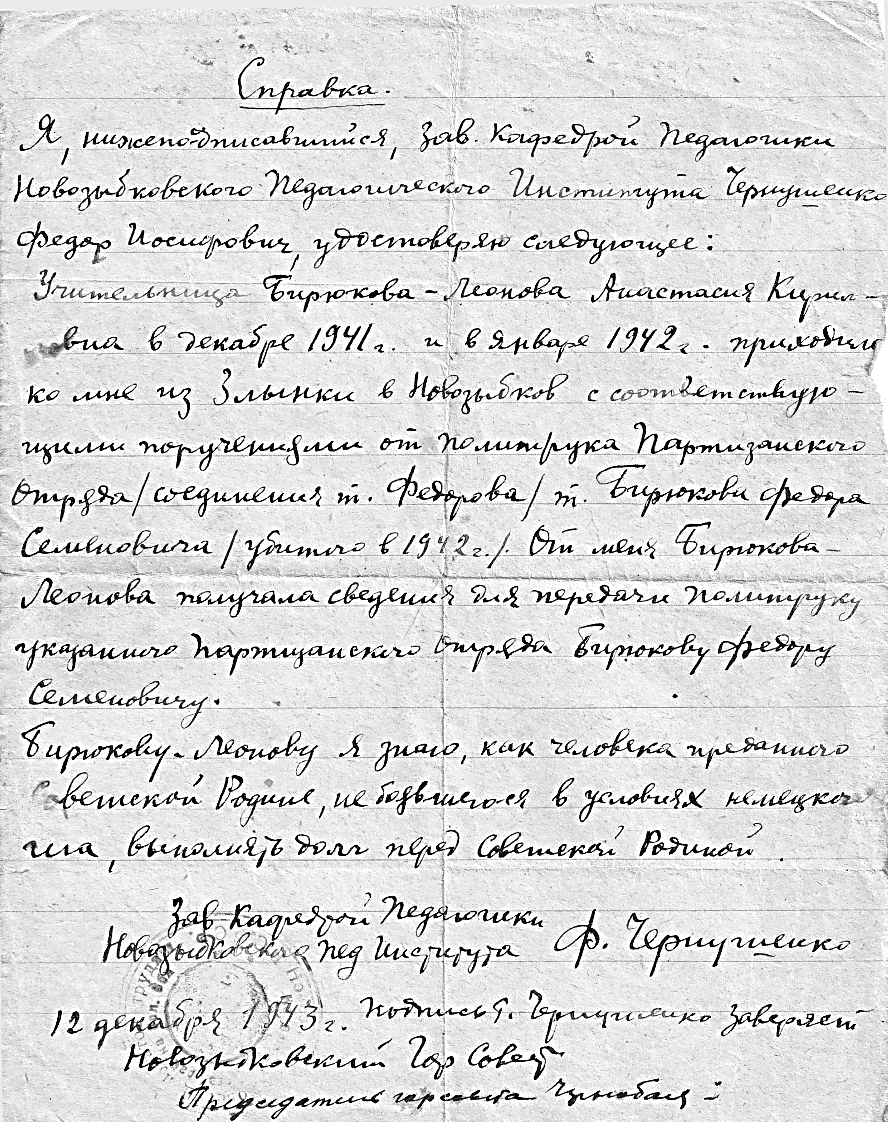 Справка.
Я, нижеподписавшийся, Зав. Кафедрой Педагогики
Новозыбковского Педагогического Института Чернушенко
Федор Иосифович, удостоверяю следующее:
Учительница Бирюкова-Леонова Анастасия Кирил-
овна в декабре 1941 г. и в январе 1942 г. приходила
ко мне из Злынки в Новозыбков с соответствую-
щими поручениями от политрука Партизанского
Отряда /соединения т. Федорова/ т. Бирюкова Федора
Семеновича /убитого в 1942 г./. От меня Бирюкова-
Леонова получала сведения для передачи политруку
указанного Партизанского Отряда Бирюкову Федору
Семеновичу.
Бирюкову-Леонову я знаю, как человека преданного
Советской Родине, не боявшегося в условиях немецкого
ига, выполнять долг перед Советской Родиной.
Зав Кафедрой Педагогики
Новозыбковского Пед Института Ф. Чернушенко
12 декабря 1943 г. Подпись т. Чернушенко Заверяет
Новозыбковский Гор Совет
Председатель горсовета